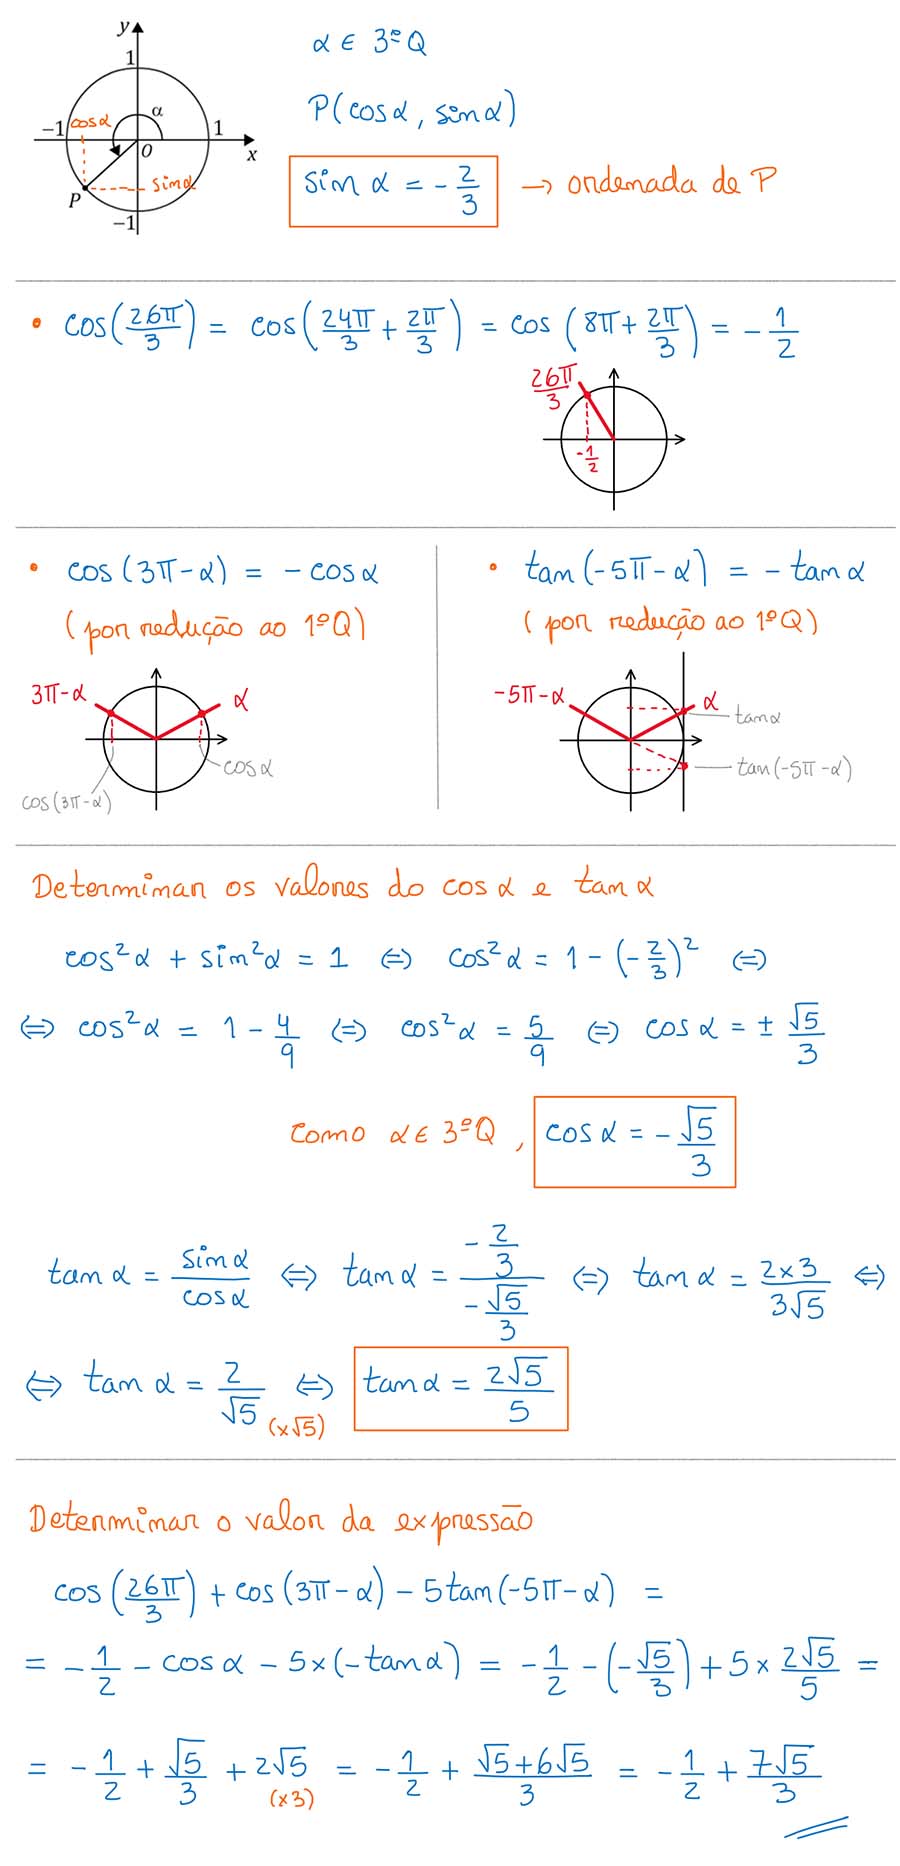 y
1
α ∈ 3ºQ
P(cosα, sinα)
−1 cosα α 1
O x
P sinα
−1
sin α = -2/3 → ordenada de P
• cos(26π/3) = cos(24π/3 + 2π/3) = cos(8π + 2π/3) = -1/2
26π/3
-1/2
• cos(3π-α) = -cosα
(por redução ao 1ºQ)
3π-α α
cosα
cos(3π-α)
• tan(-5π-α) = -tanα
(por redução ao 1ºQ)
-5π-α α
tanα
tan(-5π-α)
Determinar os valores do cosα e tanα
cos²α + sin²α = 1 ⇔ cos²α = 1-(-2/3)² ⇔
⇔ cos²α = 1 - 4/9 ⇔ cos²α = 5/9 ⇔ cosα = ± √5/3
Como α ∈ 3ºQ, cosα = -√5/3
tanα = sinα/cosα ⇔ tanα = (-2/3)/(-√5/3) ⇔ tanα = 2×3/3√5 ⇔
⇔ tanα = 2/√5 (×√5) ⇔ tanα = 2√5/5
Determinar o valor da expressão
cos(26π/3) + cos(3π-α) - 5tan(-5π-α) =
= -1/2 - cosα - 5×(-tanα) = -1/2 - (-√5/3) + 5 × 2√5/5 =
= -1/2 + √5/3 + 2√5 (×3) = -1/2 + √5+6√5/3 = -1/2 + 7√5/3